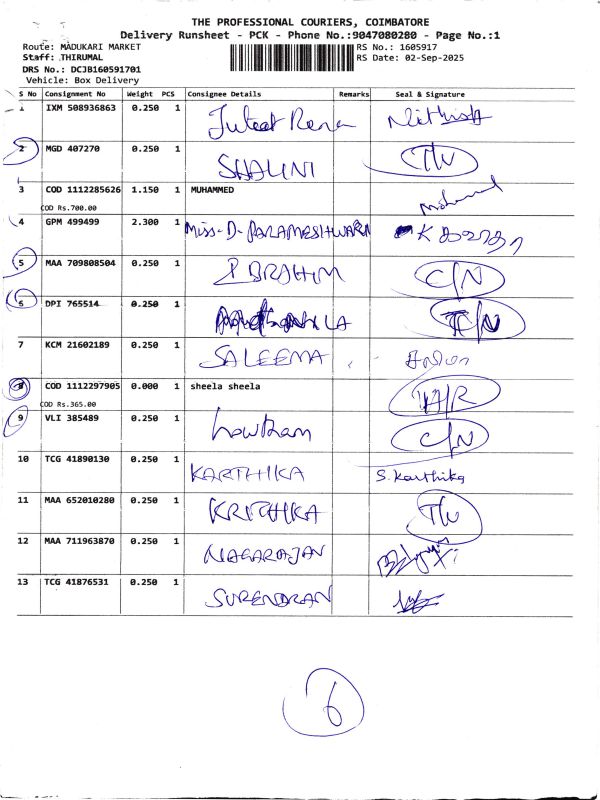 THE PROFESSIONAL COURIERS, COIMBATORE
Delivery Runsheet - PCK - Phone No.:9047080280 - Page No.:1
Route: MADUKARI MARKET RS No.: 1605917
Staff: THIRUMAL RS Date: 02-Sep-2025
DRS No.: DCJB160591701
Vehicle: Box Delivery
S No Consignment No Weight PCS Consignee Details Remarks Seal & Signature
1 IXM 508936863 0.250 1
2 MGD 407270 0.250 1 SHALINI
3 COD 1112285626 1.150 1 MUHAMMED Mohammed
COD Rs.700.00
4 GPM 499499 2.300 1 Miss-D-PARAMESHWARI
5 MAA 709808504 0.250 1 IBRAHIM C/N
6 DPI 765514 0.250 1
7 KCM 21602189 0.250 1 SALEEMA
8 COD 1112297905 0.000 1 sheela sheela
COD Rs.365.00
9 VLI 385489 0.250 1 Gowtham C/N
10 TCG 41890130 0.250 1 KARTHIKA S. Karthika
11 MAA 652010280 0.250 1 KRITHIKA
12 MAA 711963870 0.250 1 NAGARAJAN
13 TCG 41876531 0.250 1 SURENDRAN
6